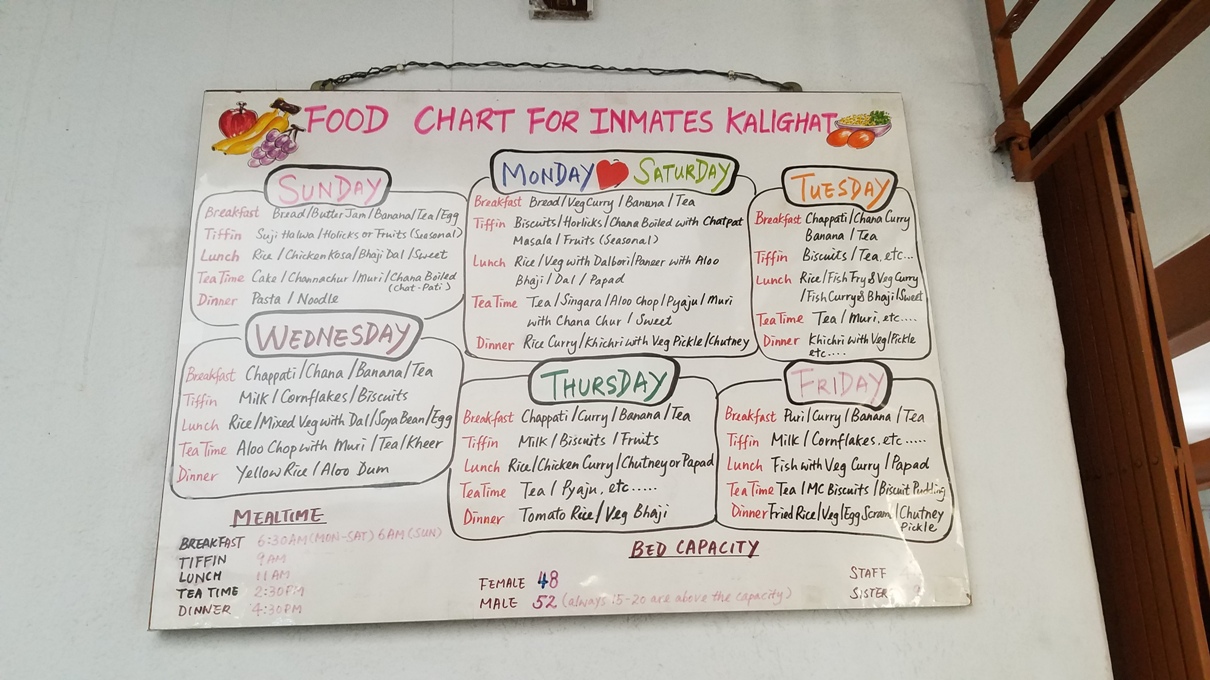 FOOD CHART FOR INMATES KALIGHAT
SUNDAY
Breakfast Bread/Butter Jam/Banana/Tea/Egg
Tiffin Suji Halwa/Holicks or Fruits (Seasonal)
Lunch Rice/Chicken Kosa/Bhaji Dal/Sweet
Tea Time Cake/Channachur/Muri/Chana Boiled
(Chat-Pati)
Dinner Pasta/Noodle
MONDAY SATURDAY
Breakfast Bread/Veg Curry/Banana/Tea
Tiffin Biscuits/Horlicks/Chana Boiled with Chatpat
Masala/Fruits (Seasonal)
Lunch Rice/Veg with Dalbori/Paneer with Aloo
Bhaji/Dal/Papad
Tea Time Tea/Singara/Aloo Chop/Pyaju/Muri
with Chana Chur/Sweet
Dinner Rice Curry/Khichri with Veg Pickle/Chutney
TUESDAY
Breakfast Chappati/Chana Curry
Banana/Tea
Tiffin Biscuits/Tea, etc...
Lunch Rice/Fish Fry & Veg Curry
/Fish Curry & Bhaji/Sweet
Tea Time Tea/Muri, etc....
Dinner Khichri with Veg/Pickle
etc....
WEDNESDAY
Breakfast Chappati/Chana/Banana/Tea
Tiffin Milk/Cornflakes/Biscuits
Lunch Rice/Mixed Veg with Dal/Soya Bean/Egg
Tea Time Aloo Chop with Muri/Tea/Kheer
Dinner Yellow Rice/Aloo Dum
THURSDAY
Breakfast Chappati/Curry/Banana/Tea
Tiffin Milk/Biscuits/Fruits
Lunch Rice/Chicken Curry/Chutney or Papad
Tea Time Tea/Pyaju, etc.....
Dinner Tomato Rice/Veg Bhaji
FRIDAY
Breakfast Puri/Curry/Banana/Tea
Tiffin Milk/Cornflakes, etc.....
Lunch Fish with Veg Curry/Papad
Tea Time Tea/MC Biscuits/Biscuit Pudding
Dinner Fried Rice/Veg/Egg Scram/Chutney
Pickle
MEALTIME
BREAKFAST 6:30AM (MON-SAT) 6AM (SUN)
TIFFIN 9AM
LUNCH 11AM
TEA TIME 2:30PM
DINNER 4:30PM
BED CAPACITY
FEMALE 48
MALE 52 (always 15-20 are above the capacity)
STAFF
SISTER